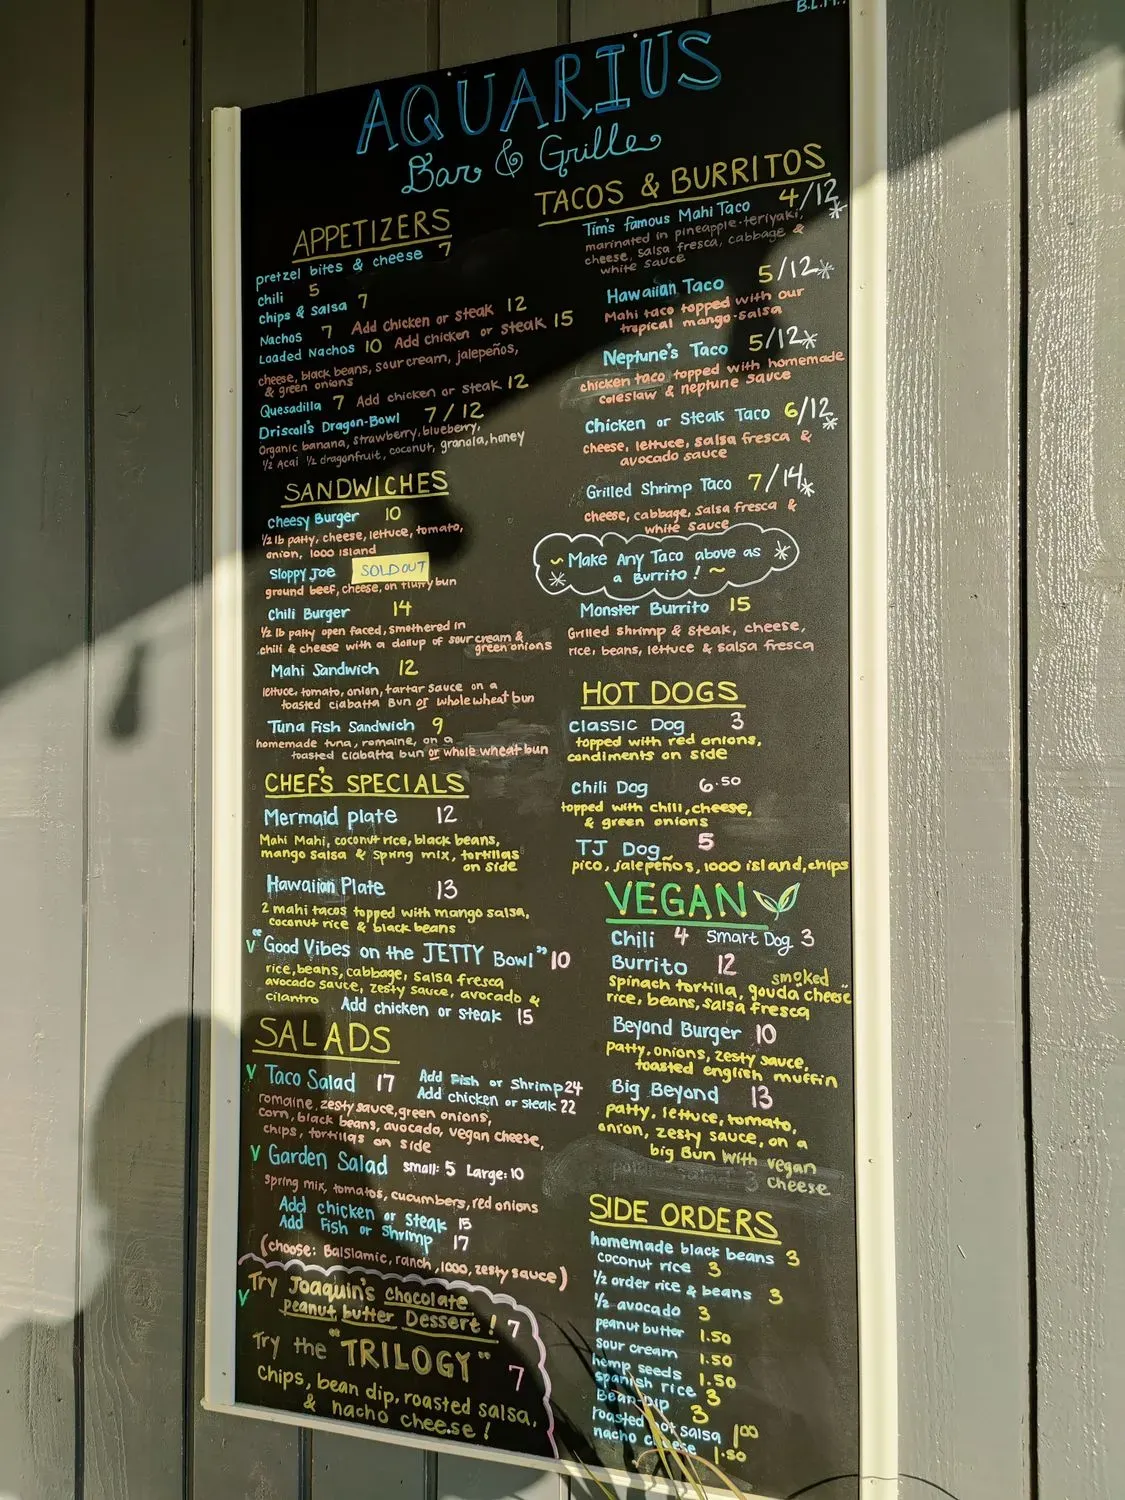 B.L.M.
AQUARIUS
Bar & Grille
APPETIZERS
pretzel bites & cheese 7
chili 5
chips & salsa 7
Nachos 7 Add chicken or steak 12
Loaded Nachos 10 Add chicken or steak 15
cheese, black beans, sour cream, jalepeños,
& green onions
Quesadilla 7 Add chicken or steak 12
Driscoll's Dragon-Bowl 7/12
Organic banana, strawberry, blueberry,
1/2 Acai 1/2 dragonfruit, coconut, granola, honey
SANDWICHES
Cheesy Burger 10
1/2 lb patty, cheese, lettuce, tomato,
onion, 1000 island
Sloppy Joe SOLD OUT
ground beef, cheese, on fluffy bun
Chili Burger 14
1/2 lb patty open faced, smothered in
chili & cheese with a dollup of sour cream &
green onions
Mahi Sandwich 12
lettuce, tomato, onion, tartar sauce on a
toasted ciabatta bun or whole wheat bun
Tuna Fish Sandwich 9
homemade tuna, romaine, on a
toasted ciabatta bun or whole wheat bun
CHEF'S SPECIALS
Mermaid plate 12
Mahi Mahi, coconut rice, black beans,
mango salsa & spring mix, tortillas
on side
Hawaiian Plate 13
2 mahi tacos topped with mango salsa,
coconut rice & black beans
V "Good Vibes on the JETTY Bowl" 10
rice, beans, cabbage, salsa fresca
avocado sauce, zesty sauce, avocado &
cilantro Add chicken or steak 15
SALADS
V Taco Salad 17 Add Fish or Shrimp 24
Add chicken or steak 22
romaine, zesty sauce, green onions,
corn, black beans, avocado, vegan cheese,
chips, tortillas on side
V Garden Salad small: 5 Large: 10
spring mix, tomatos, cucumbers, red onions
Add chicken or steak 15
Add Fish or Shrimp 17
(choose: Balslamic, ranch, 1000, zesty sauce)
Try Joaquin's chocolate
V peanut butter Dessert! 7
Try the "TRILOGY" 7
Chips, bean dip, roasted salsa,
& nacho cheese!
TACOS & BURRITOS
4/12*
Tim's famous Mahi Taco
marinated in pineapple-teriyaki,
cheese, salsa fresca, cabbage &
white sauce
Hawaiian Taco 5/12*
Mahi taco topped with our
tropical mango-salsa
Neptune's Taco 5/12*
chicken taco topped with homemade
coleslaw & neptune sauce
Chicken or Steak Taco 6/12*
cheese, lettuce, salsa fresca &
avocado sauce
Grilled Shrimp Taco 7/14*
cheese, cabbage, salsa fresca &
white sauce
~ Make Any Taco above as *
* a Burrito! ~
Monster Burrito 15
Grilled shrimp & steak, cheese,
rice, beans, lettuce & salsa fresca
HOT DOGS
Classic Dog 3
topped with red onions,
condiments on side
Chili Dog 6.50
topped with chili, cheese,
& green onions
TJ Dog 5
pico, jalepeños, 1000 island, chips
VEGAN
Chili 4 Smart Dog 3
Burrito 12
smoked
spinach tortilla, gouda cheese
rice, beans, salsa fresca
Beyond Burger 10
patty, onions, zesty sauce,
toasted english muffin
Big Beyond 13
patty, lettuce, tomato,
onion, zesty sauce, on a
big Bun with vegan
cheese
SIDE ORDERS
homemade black beans 3
coconut rice 3
1/2 order rice & beans 3
1/2 avocado 3
peanut butter 1.50
sour cream 1.50
hemp seeds 1.50
spanish rice 3
Bean-Dip 3
roasted hot salsa 1.00
nacho cheese 1.50